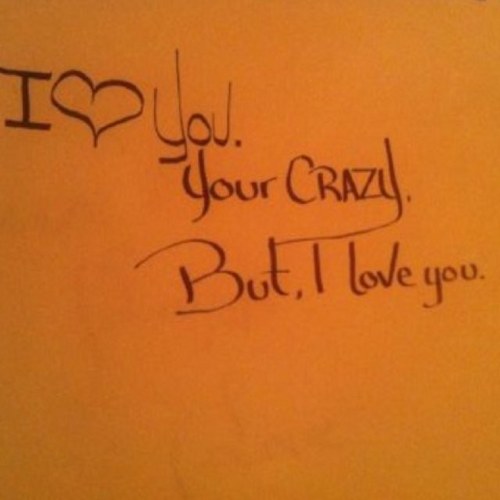 I ♡ You.
Your CRAZY.
But, I love you.